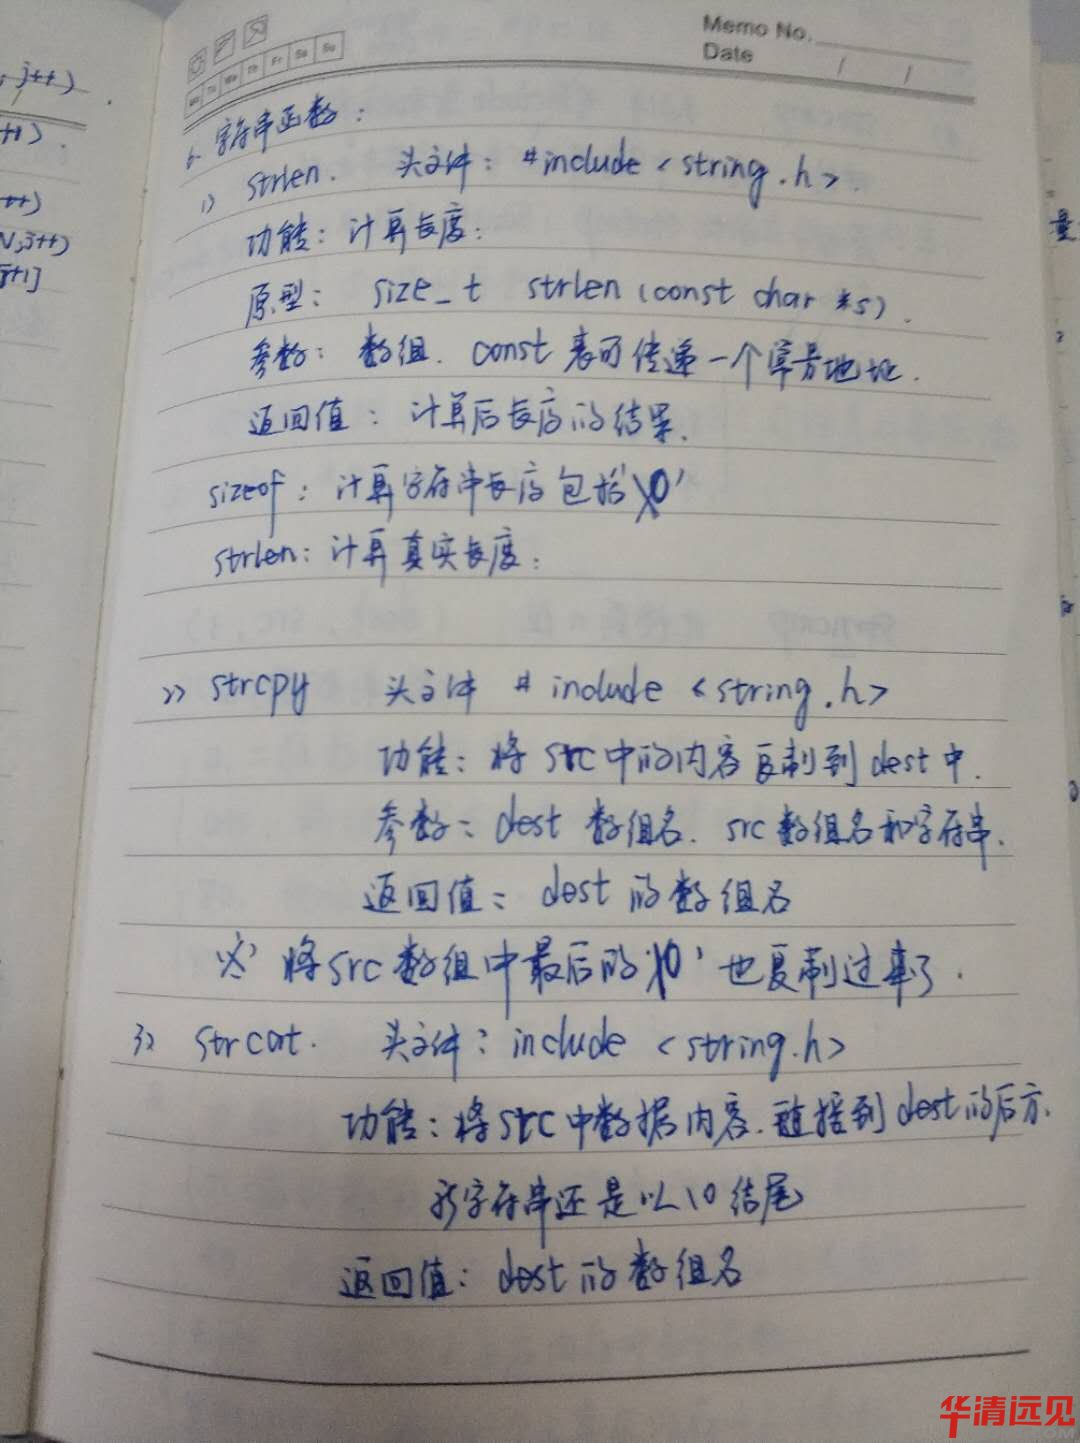 Memo No.
Date / /
Mo Tu We Th Fr Sa Su
6. 字符串函数:
1) strlen. 头文件: #include <string.h>.
功能: 计算长度:
原型: size_t strlen (const char *s).
参数: 数组. const 表可传递一个字符地址.
返回值: 计算后长度的结果.
sizeof: 计算字符串长度包括'\0'
strlen: 计算真实长度:
2) strcpy 头文件 # include <string.h>
功能: 将 src 中的内容复制到 dest 中.
参数: dest 数组名. src 数组名和字符串.
返回值: dest 的数组名
※ 将src数组中最后的'\0'也复制过来了.
3) strcat. 头文件: include <string.h>
功能: 将src中数据内容.链接到dest的后方.
新字符串还是以\0结尾
返回值: dest的数组名
, j++)
++).
++)
N,j++)
j+1]
量
华清远见